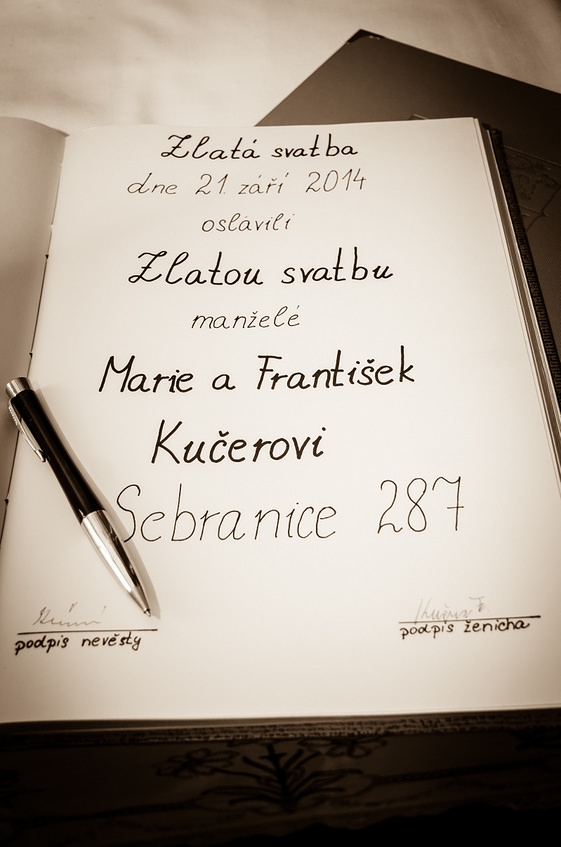 Zlatá svatba
dne 21. září 2014
oslavili
Zlatou svatbu
manželé
Marie a František
Kučerovi
Sebranice 287
podpis nevěsty
podpis ženicha